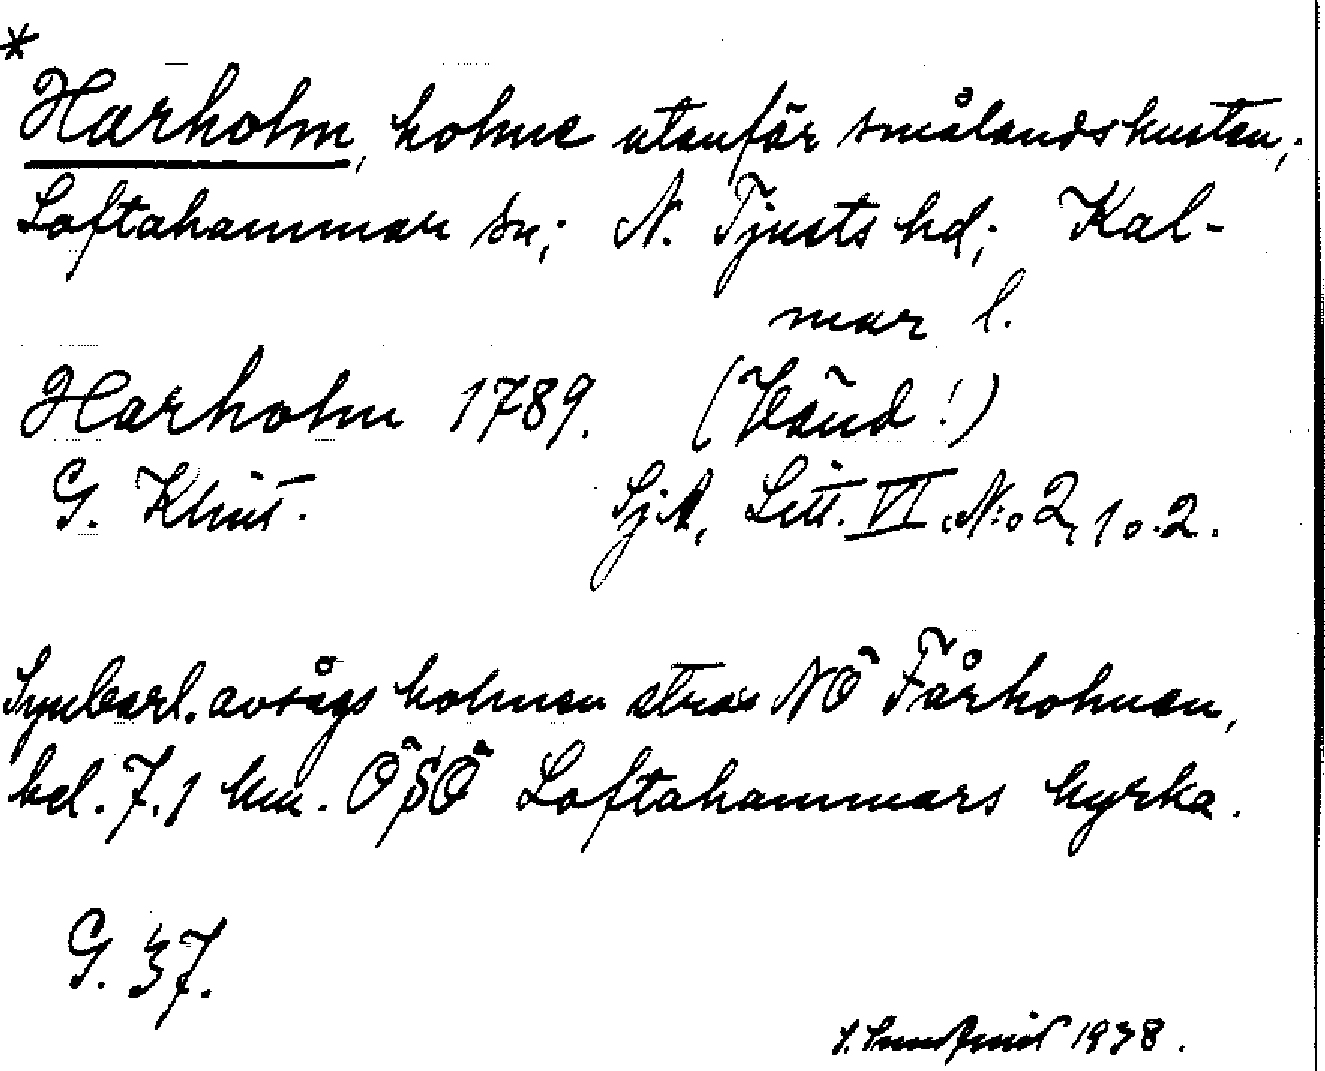 *
Harholm, holme utanför smålandskusten,
Loftahammar sn; N. Tjusts hd; Kal-
mar l.
Harholm 1789. (Vänd!)
G. Klint. SjA, Litt. VI. N:o 2, 1 o. 2.
Synbarl. avságs holmen strax NÖ Fårholmen,
bel. 7.1 km. ÖSÖ Loftahammars kyrka.
G. 37.
1938.